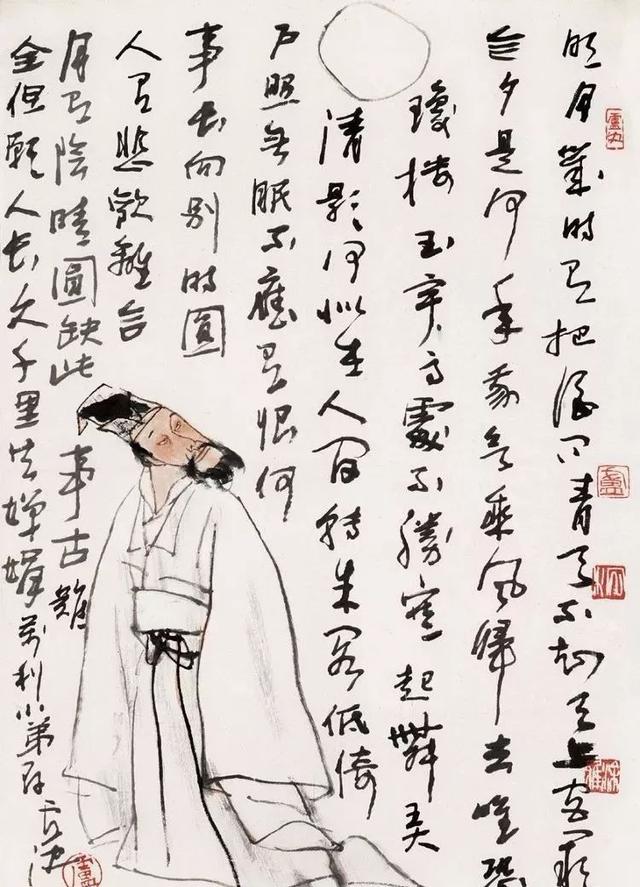 明月幾時有把酒問青天不知天上宮闕
今夕是何年我欲乘風歸去唯恐
瓊樓玉宇高處不勝寒起舞弄
清影何似在人間轉朱閣低倚
戶照無眠不應有恨何
事長向別時圓
人有悲歡離合
月有陰晴圓缺此事古難
全但願人長久千里共嬋娟 萬利小弟存 盧沉